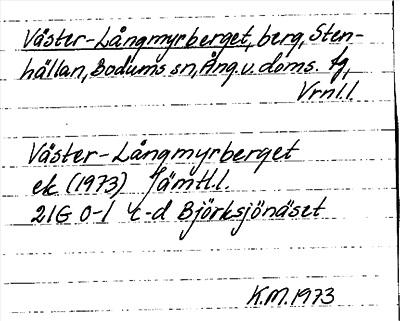 Väster-Långmyrberget, berg, Sten-
hällan, Bodums sn, Ång. v. doms. tg,
Vrnl.l.
Väster-Långmyrberget
ek. (1973) Jämtl.l.
21G 0-1 c-d Björksjönäset
K.M. 1973